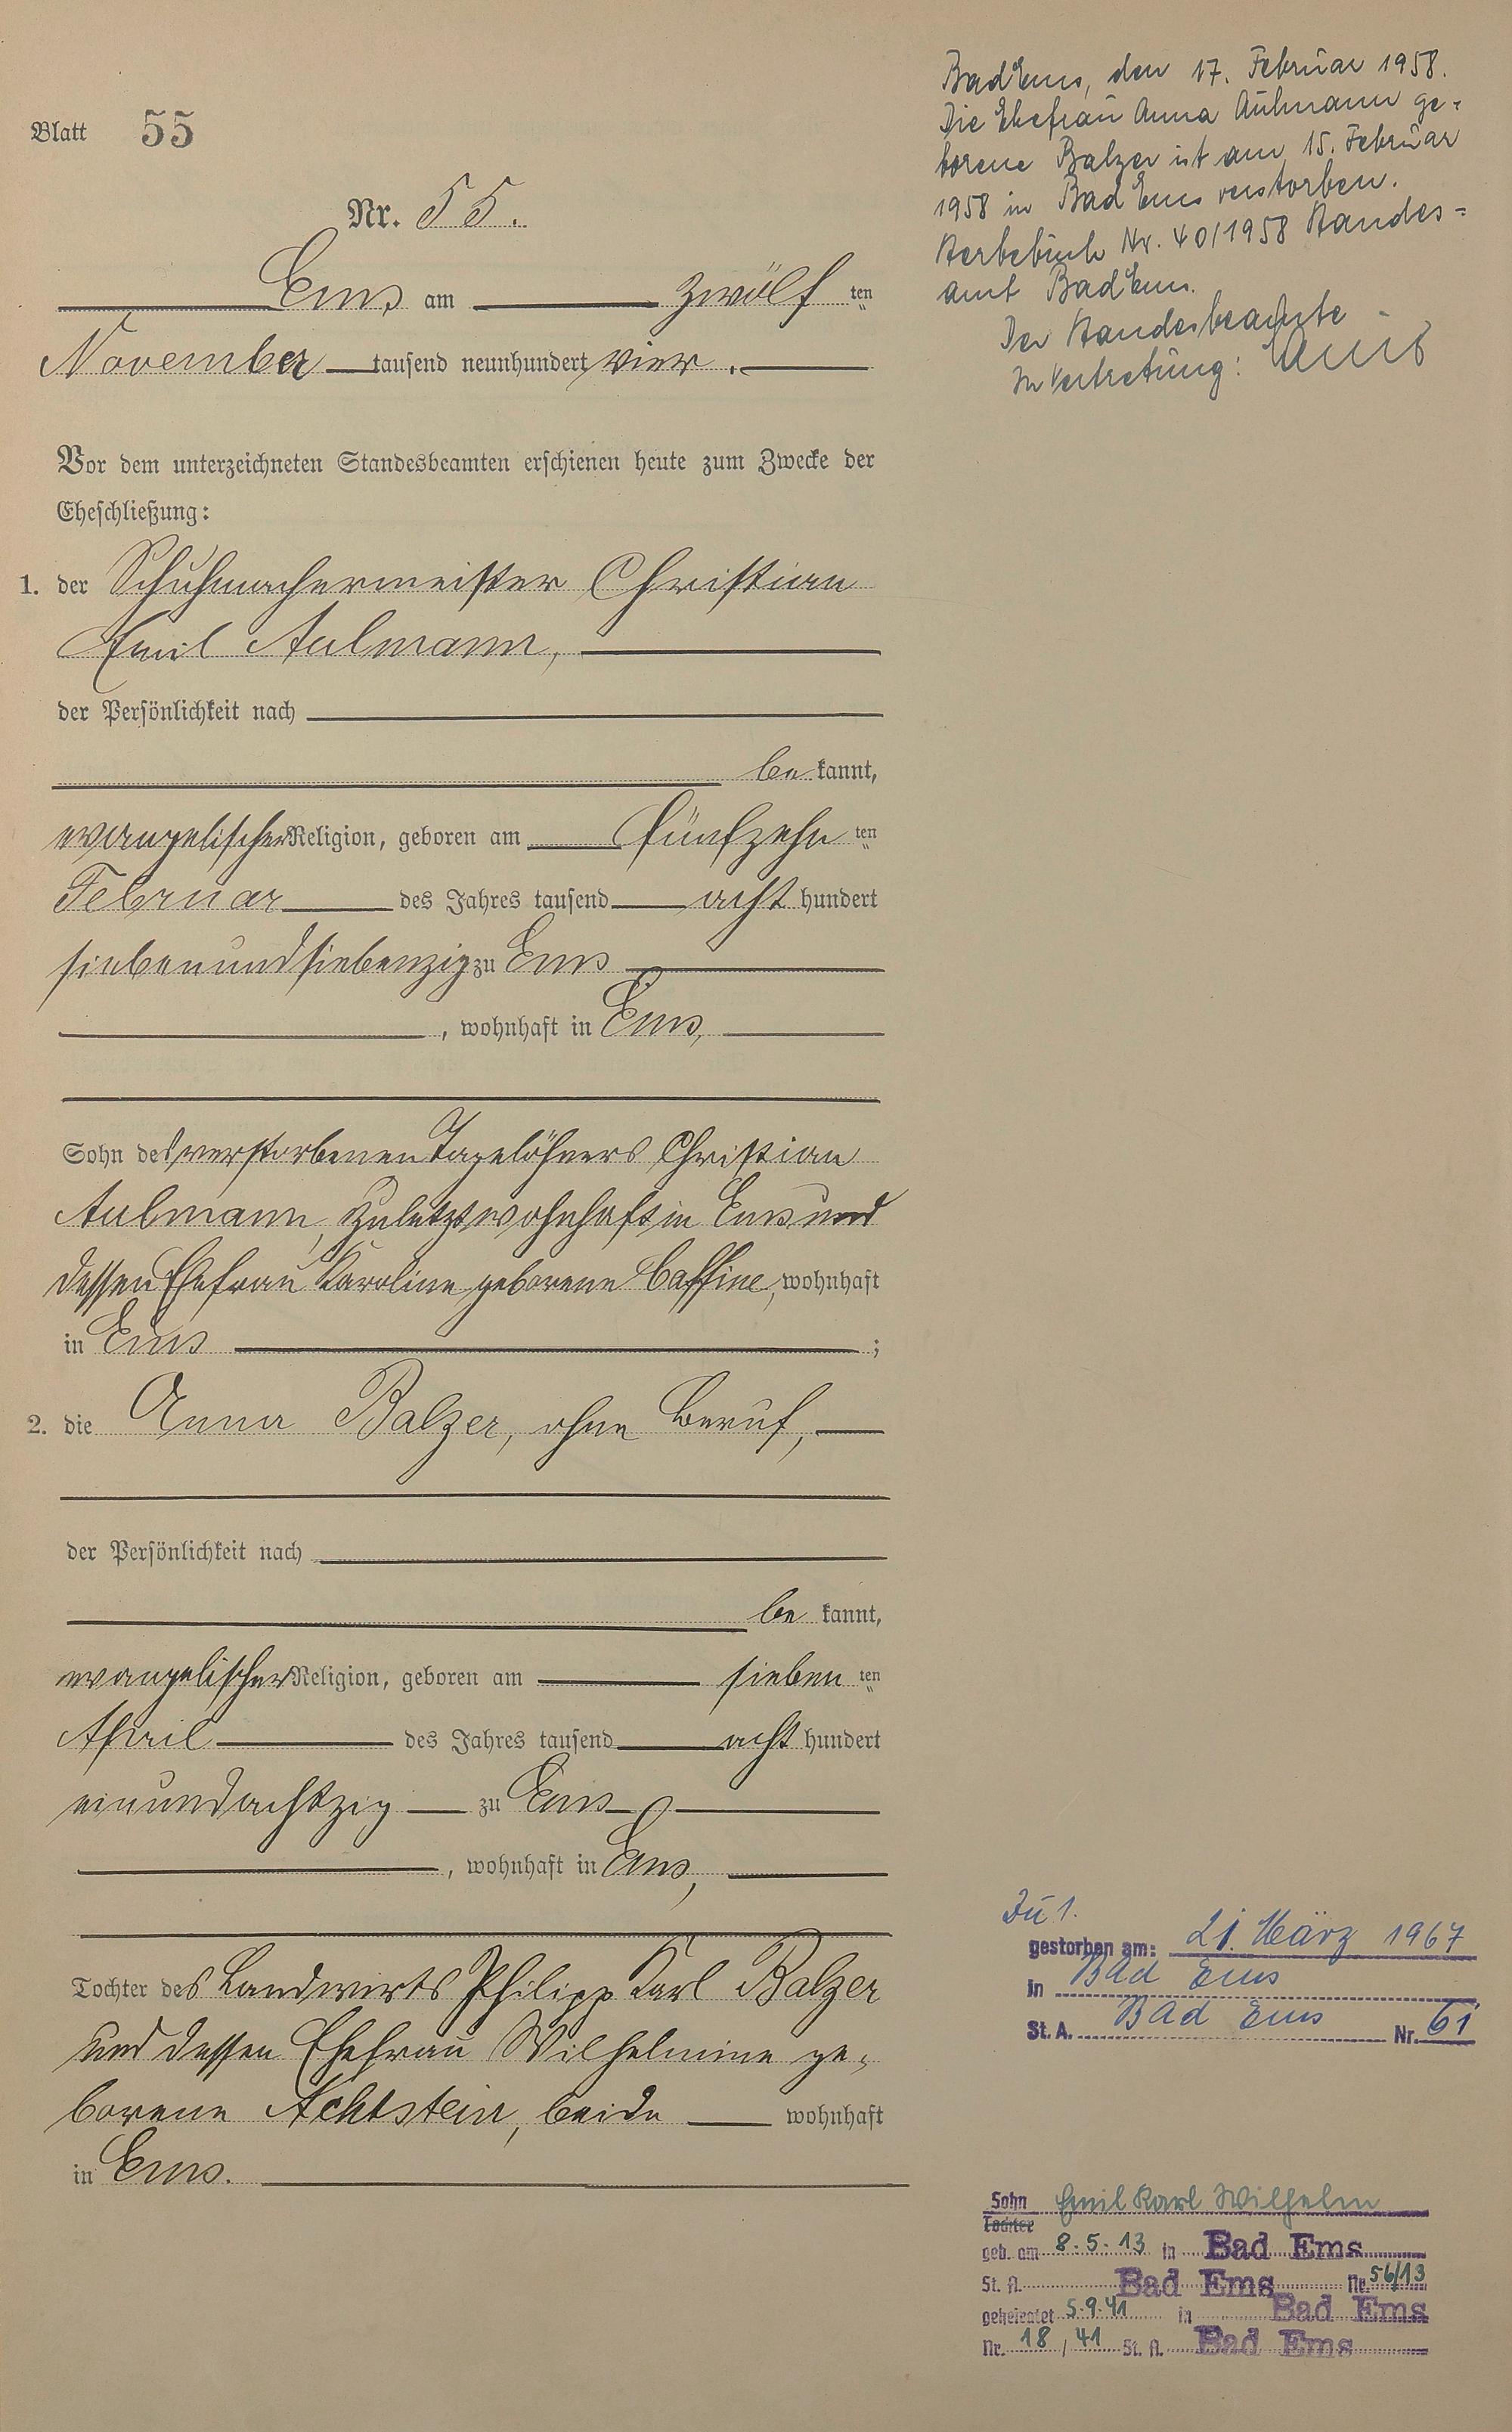 Blatt 55
Nr. 55.
Ems am zwölf ten
November tausend neunhundert vier.
Vor dem unterzeichneten Standesbeamten erschienen heute zum Zwecke der
Eheschließung:
1. der Schuhmachermeister Christian
Emil Aulmann,
der Persönlichkeit nach
be kannt,
evangelischer Religion, geboren am fünfzehn ten
Februar des Jahres tausend acht hundert
siebenundsiebenzig zu Ems
, wohnhaft in Ems,
Sohn des verstorbenen Tagelöhners Christian
Aulmann, zuletzt wohnhaft in Ems und
dessen Ehefrau Karoline geborene Caffine, wohnhaft
in Ems ;
2. die Anna Balzer, ohne Beruf,
der Persönlichkeit nach
be kannt,
evangelischer Religion, geboren am sieben ten
April des Jahres tausend acht hundert
einundachtzig zu Ems
, wohnhaft in Ems,
Tochter des Landwirts Philipp Karl Balzer
und dessen Ehefrau Wilhelmine ge-
borene Achtstein, beide wohnhaft
in Ems.
Bad Ems, den 17. Februar 1958.
Die Ehefrau Anna Aulmann ge-
borene Balzer ist am 15. Februar
1958 in Bad Ems verstorben.
Sterbebuch Nr. 40/1958 Standes-
amt Bad Ems.
Der Standesbeamte
In Vertretung:
Zu 1.
gestorben am: 21. März 1967
in Bad Ems
St. A. Bad Ems Nr. 61
Sohn Emil Karl Wilhelm
Tochter
geb. am 8.5.13 in Bad Ems
St. A. Bad Ems Nr. 56/13
geheiratet 5.9.41 in Bad Ems
Nr. 18 / 41 St. A. Bad Ems